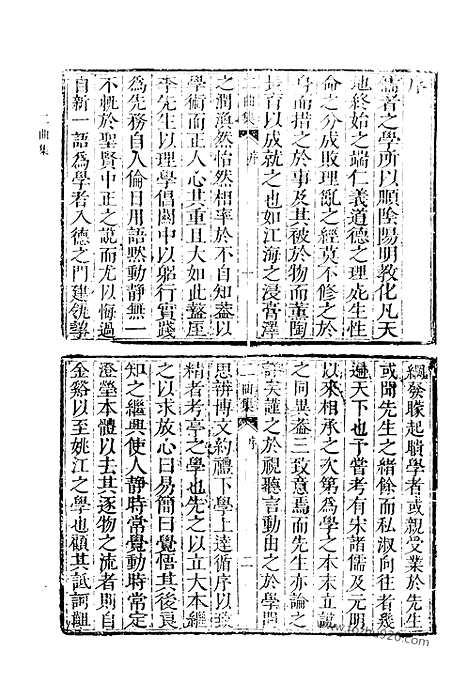 二曲集
序
儒者之學所以順陰陽明教化凡天
地終始之端仁義道德之理死生性
命之分成敗理亂之經莫不修之於
身而措之於事及其被於物而薰陶
長育以成就之也如江海之浸膏澤
二曲集 序 一
之潤渙然怡然相率於不自知蓋以
學術而正人心其重且大如此盩厔
李先生以理學倡關中以躬行實踐
爲先務自人倫日用語默動靜無一
不軌於聖賢中正之說而尤以悔過
自新一語爲學者入德之門建瓴挈
綱發矇起聵學者或親受業於先生
或聞先生之緒餘而私淑向往者幾
遍天下也予嘗考有宋諸儒及元明
以來相承之次第爲學之本末立說
之同異蓋三致意焉而先生亦論之
詳矣謹之於視聽言動由之於學問
二曲集 序 二
思辨博文約禮下學上達循序以致
精者考亭之學也先之以立大本繼
之以求放心曰易簡曰覺悟其後良
知之繼興使人靜時常覺動時常定
澄瑩本體以去其逐物之流者則自
金谿以至姚江之學也顧其詆訶